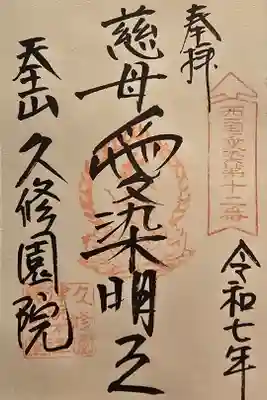 奉拝
西国愛染第十二番
令和七年
慈母愛染明王
天王山 久修園院